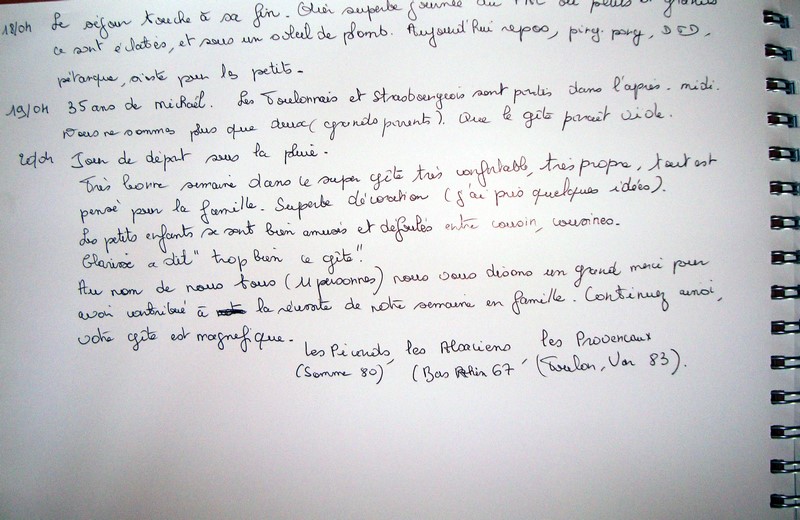 18/04 Le séjour touche à sa fin. Hier superbe journée au PAL où petits et grands
se sont éclatés, et sous un soleil de plomb. Aujourd'hui repos, ping-pong, DVD,
pétanque, sieste pour les petits.
19/04 35 ans de michaël. Les Toulonnais et Strasbourgeois sont partis dans l'après-midi.
Nous ne sommes plus que deux (grands parents). Que le gîte parait vide.
20/04 Jour de départ sous la pluie.
Très bonne semaine dans ce super gîte très confortable, très propre, tout est
pensé pour la famille. Superbe décoration (j'ai pris quelques idées).
Les petits enfants se sont bien amusés et défoulés entre cousin, cousines.
Clarisse a dit "trop bien ce gîte"!
Au nom de nous tous (11 personnes) nous vous disons un grand merci pour
avoir contribué à la réussite de notre semaine en famille. Continuez ainsi,
votre gîte est magnifique.
Les Picards, les Alsaciens les Provencaux
(Somme 80) (Bas Rhin 67, (Toulon, Var 83).